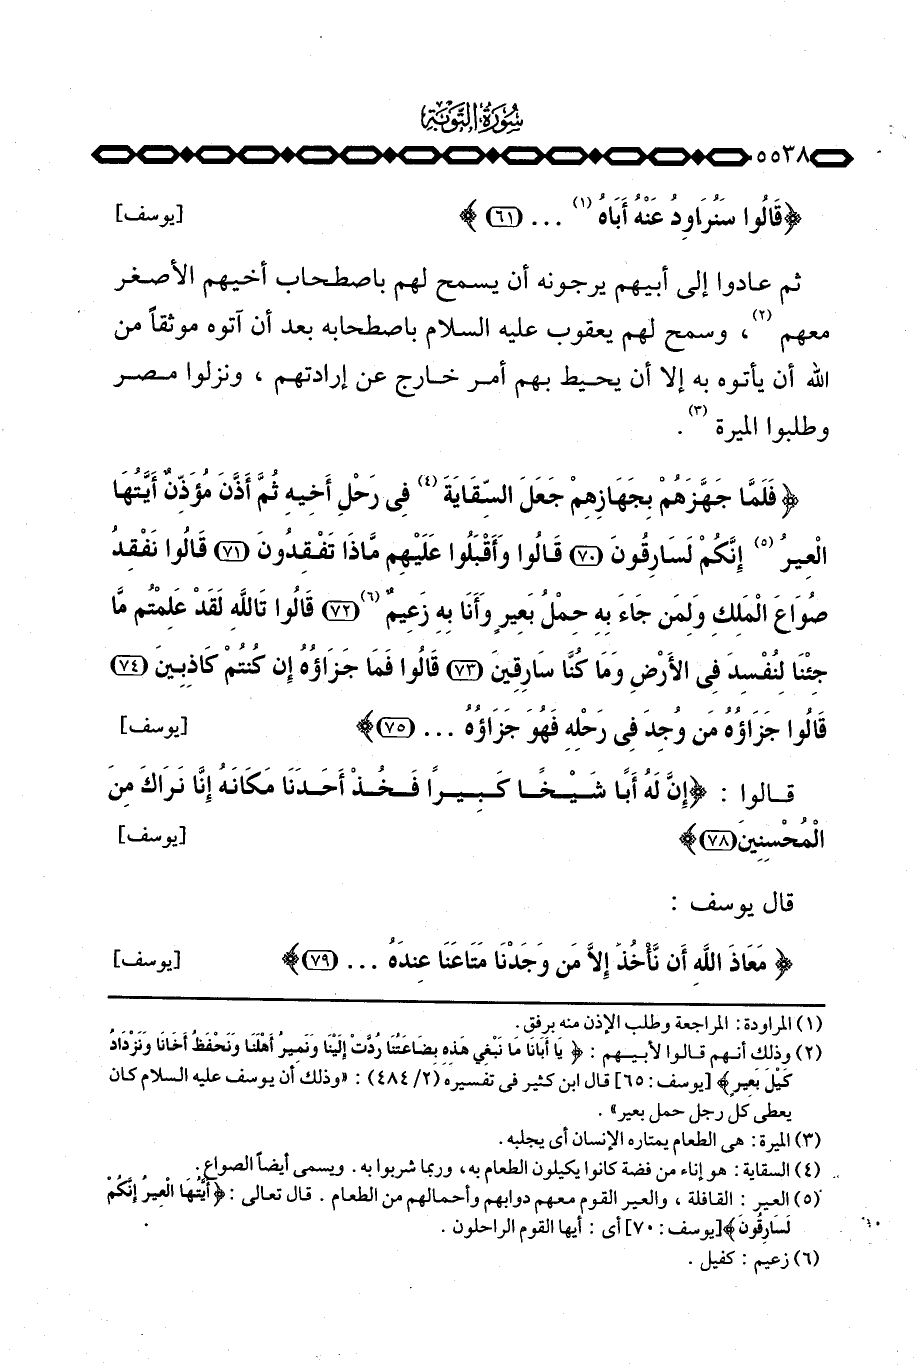 سُورَةُ التَّوْبَةِ
٥٥٣٨
﴿ قَالُوا سَنُرَاوِدُ عَنْهُ أَبَاهُ (١) ... (٦١) ﴾ [يوسف]
ثم عادوا إلى أبيهم يرجونه أن يسمح لهم باصطحاب أخيهم الأصغر
معهم (٢) ، وسمح لهم يعقوب عليه السلام باصطحابه بعد أن آتوه موثقاً من
الله أن يأتوه به إلا أن يحيط بهم أمر خارج عن إرادتهم ، ونزلوا مصر
وطلبوا الميرة (٣) .
﴿ فَلَمَّا جَهَّزَهُمْ بِجَهَازِهِمْ جَعَلَ السِّقَايَةَ (٤) فِى رَحْلِ أَخِيهِ ثُمَّ أَذَّنَ مُؤَذِّنٌ أَيَّتُهَا
الْعِيرُ (٥) إِنَّكُمْ لَسَارِقُونَ (٧٠) قَالُوا وَأَقْبَلُوا عَلَيْهِم مَّاذَا تَفْقِدُونَ (٧١) قَالُوا نَفْقِدُ
صُوَاعَ الْمَلِكِ وَلِمَن جَاءَ بِهِ حِمْلُ بَعِيرٍ وَأَنَا بِهِ زَعِيمٌ (٦) (٧٢) قَالُوا تَاللَّهِ لَقَدْ عَلِمْتُم مَّا
جِئْنَا لِنُفْسِدَ فِى الأَرْضِ وَمَا كُنَّا سَارِقِينَ (٧٣) قَالُوا فَمَا جَزَاؤُهُ إِن كُنتُمْ كَاذِبِينَ (٧٤)
قَالُوا جَزَاؤُهُ مَن وُجِدَ فِى رَحْلِهِ فَهُوَ جَزَاؤُهُ ... (٧٥) ﴾ [يوسف]
قالوا : ﴿ إِنَّ لَهُ أَبًا شَيْخًا كَبِيرًا فَخُذْ أَحَدَنَا مَكَانَهُ إِنَّا نَرَاكَ مِنَ
الْمُحْسِنِينَ (٧٨) ﴾ [يوسف]
قال يوسف :
﴿ مَعَاذَ اللَّهِ أَن نَّأْخُذَ إِلاَّ مَن وَجَدْنَا مَتَاعَنَا عِندَهُ ... (٧٩) ﴾ [يوسف]
(١) المراودة : المراجعة وطلب الإذن منه برفق .
(٢) وذلك أنهم قالوا لأبيهم : ﴿ يَا أَبَانَا مَا نَبْغِي هَذِهِ بِضَاعَتُنَا رُدَّتْ إِلَيْنَا وَنَمِيرُ أَهْلَنَا وَنَحْفَظُ أَخَانَا وَنَزْدَادُ
كَيْلَ بَعِيرٍ ﴾ [يوسف : ٦٥] قال ابن كثير فى تفسيره (٢/ ٤٨٤) : «وذلك أن يوسف عليه السلام كان
يعطى كل رجل حمل بعير» .
(٣) الميرة : هى الطعام يمتاره الإنسان أى يجلبه .
(٤) السقاية : هو إناء من فضة كانوا يكيلون الطعام به ، وربما شربوا به . ويسمى أيضاً الصواع .
(٥) العير : القافلة ، والعير القوم معهم دوابهم وأحمالهم من الطعام . قال تعالى : ﴿ أَيَّتُهَا الْعِيرُ إِنَّكُمْ
لَسَارِقُونَ ﴾ [يوسف : ٧٠] أى : أيها القوم الراحلون .
(٦) زعيم : كفيل .